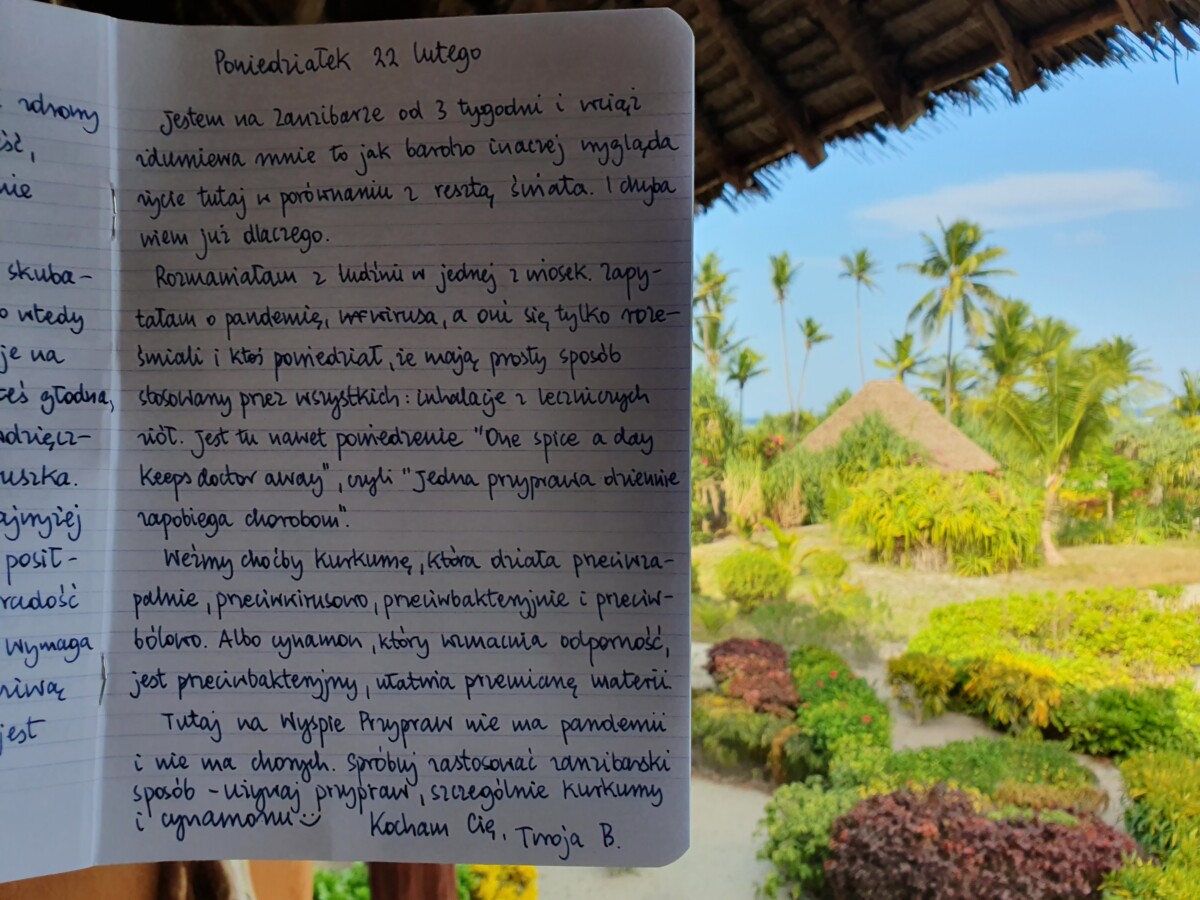 zdrowy
ść,
nie
skuba-
o wtedy
je na
ceś głodna,
dzięcz-
uszka.
ajwyżej
posił-
radość
wymaga
niwą
jest
Poniedziałek 22 lutego
Jestem na Zanzibarze od 3 tygodni i wciąż
zdumiewa mnie to jak bardzo inaczej wygląda
życie tutaj w porównaniu z resztą świata. I chyba
wiem już dlaczego.
Rozmawiałam z ludźmi w jednej z wiosek. Zapy-
tałam o pandemię, wirusa, a oni się tylko roze-
śmiali i ktoś powiedział, że mają prosty sposób
stosowany przez wszystkich: inhalacje z leczniczych
ziół. Jest tu nawet powiedzenie "One spice a day
keeps doctor away", czyli "Jedna przyprawa dziennie
zapobiega chorobom".
Weźmy choćby kurkumę, która działa przeciwza-
palnie, przeciwwirusowo, przeciwbakteryjnie i przeciw-
bólowo. Albo cynamon, który wzmacnia odporność,
jest przeciwbakteryjny, ułatwia przemianę materii.
Tutaj na Wyspie Przypraw nie ma pandemii
i nie ma chorych. Spróbuj zastosować zanzibarski
sposób - używaj przypraw, szczególnie kurkumy
i cynamonu Kocham Cię, Twoja B.